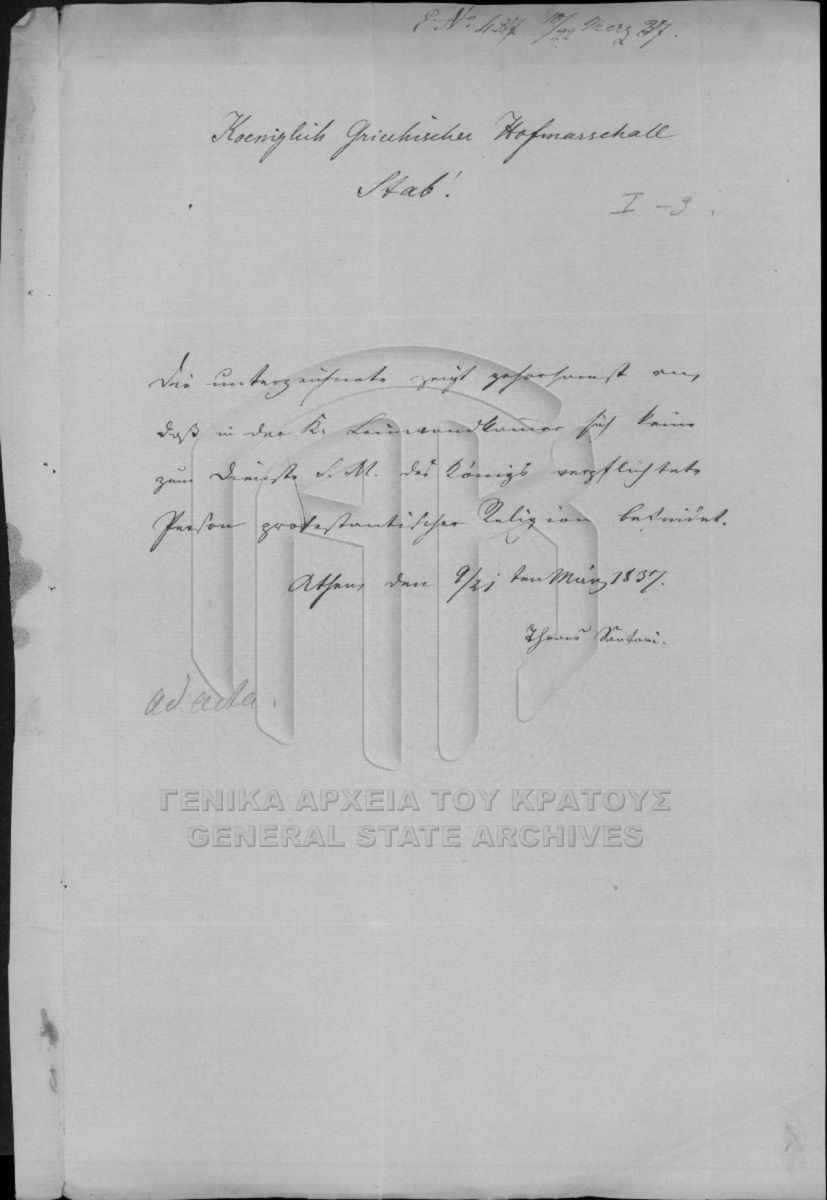 E No. 437 10/22 Merz 37.
Koeniglich Griechischer Hofmarschall
Stab!
I – 9
Die unterzeichnete zeigt gehorsamst an,
daß in der K. Leinwandkammer sich keine
zum Dienste S. M. des Königs verpflichtete
Person protestantischer Religion befindet.
Athen, den 9/21 ten März 1837.
Santori.
ad acta.
ΓΕΝΙΚΑ ΑΡΧΕΙΑ ΤΟΥ ΚΡΑΤΟΥΣ
GENERAL STATE ARCHIVES